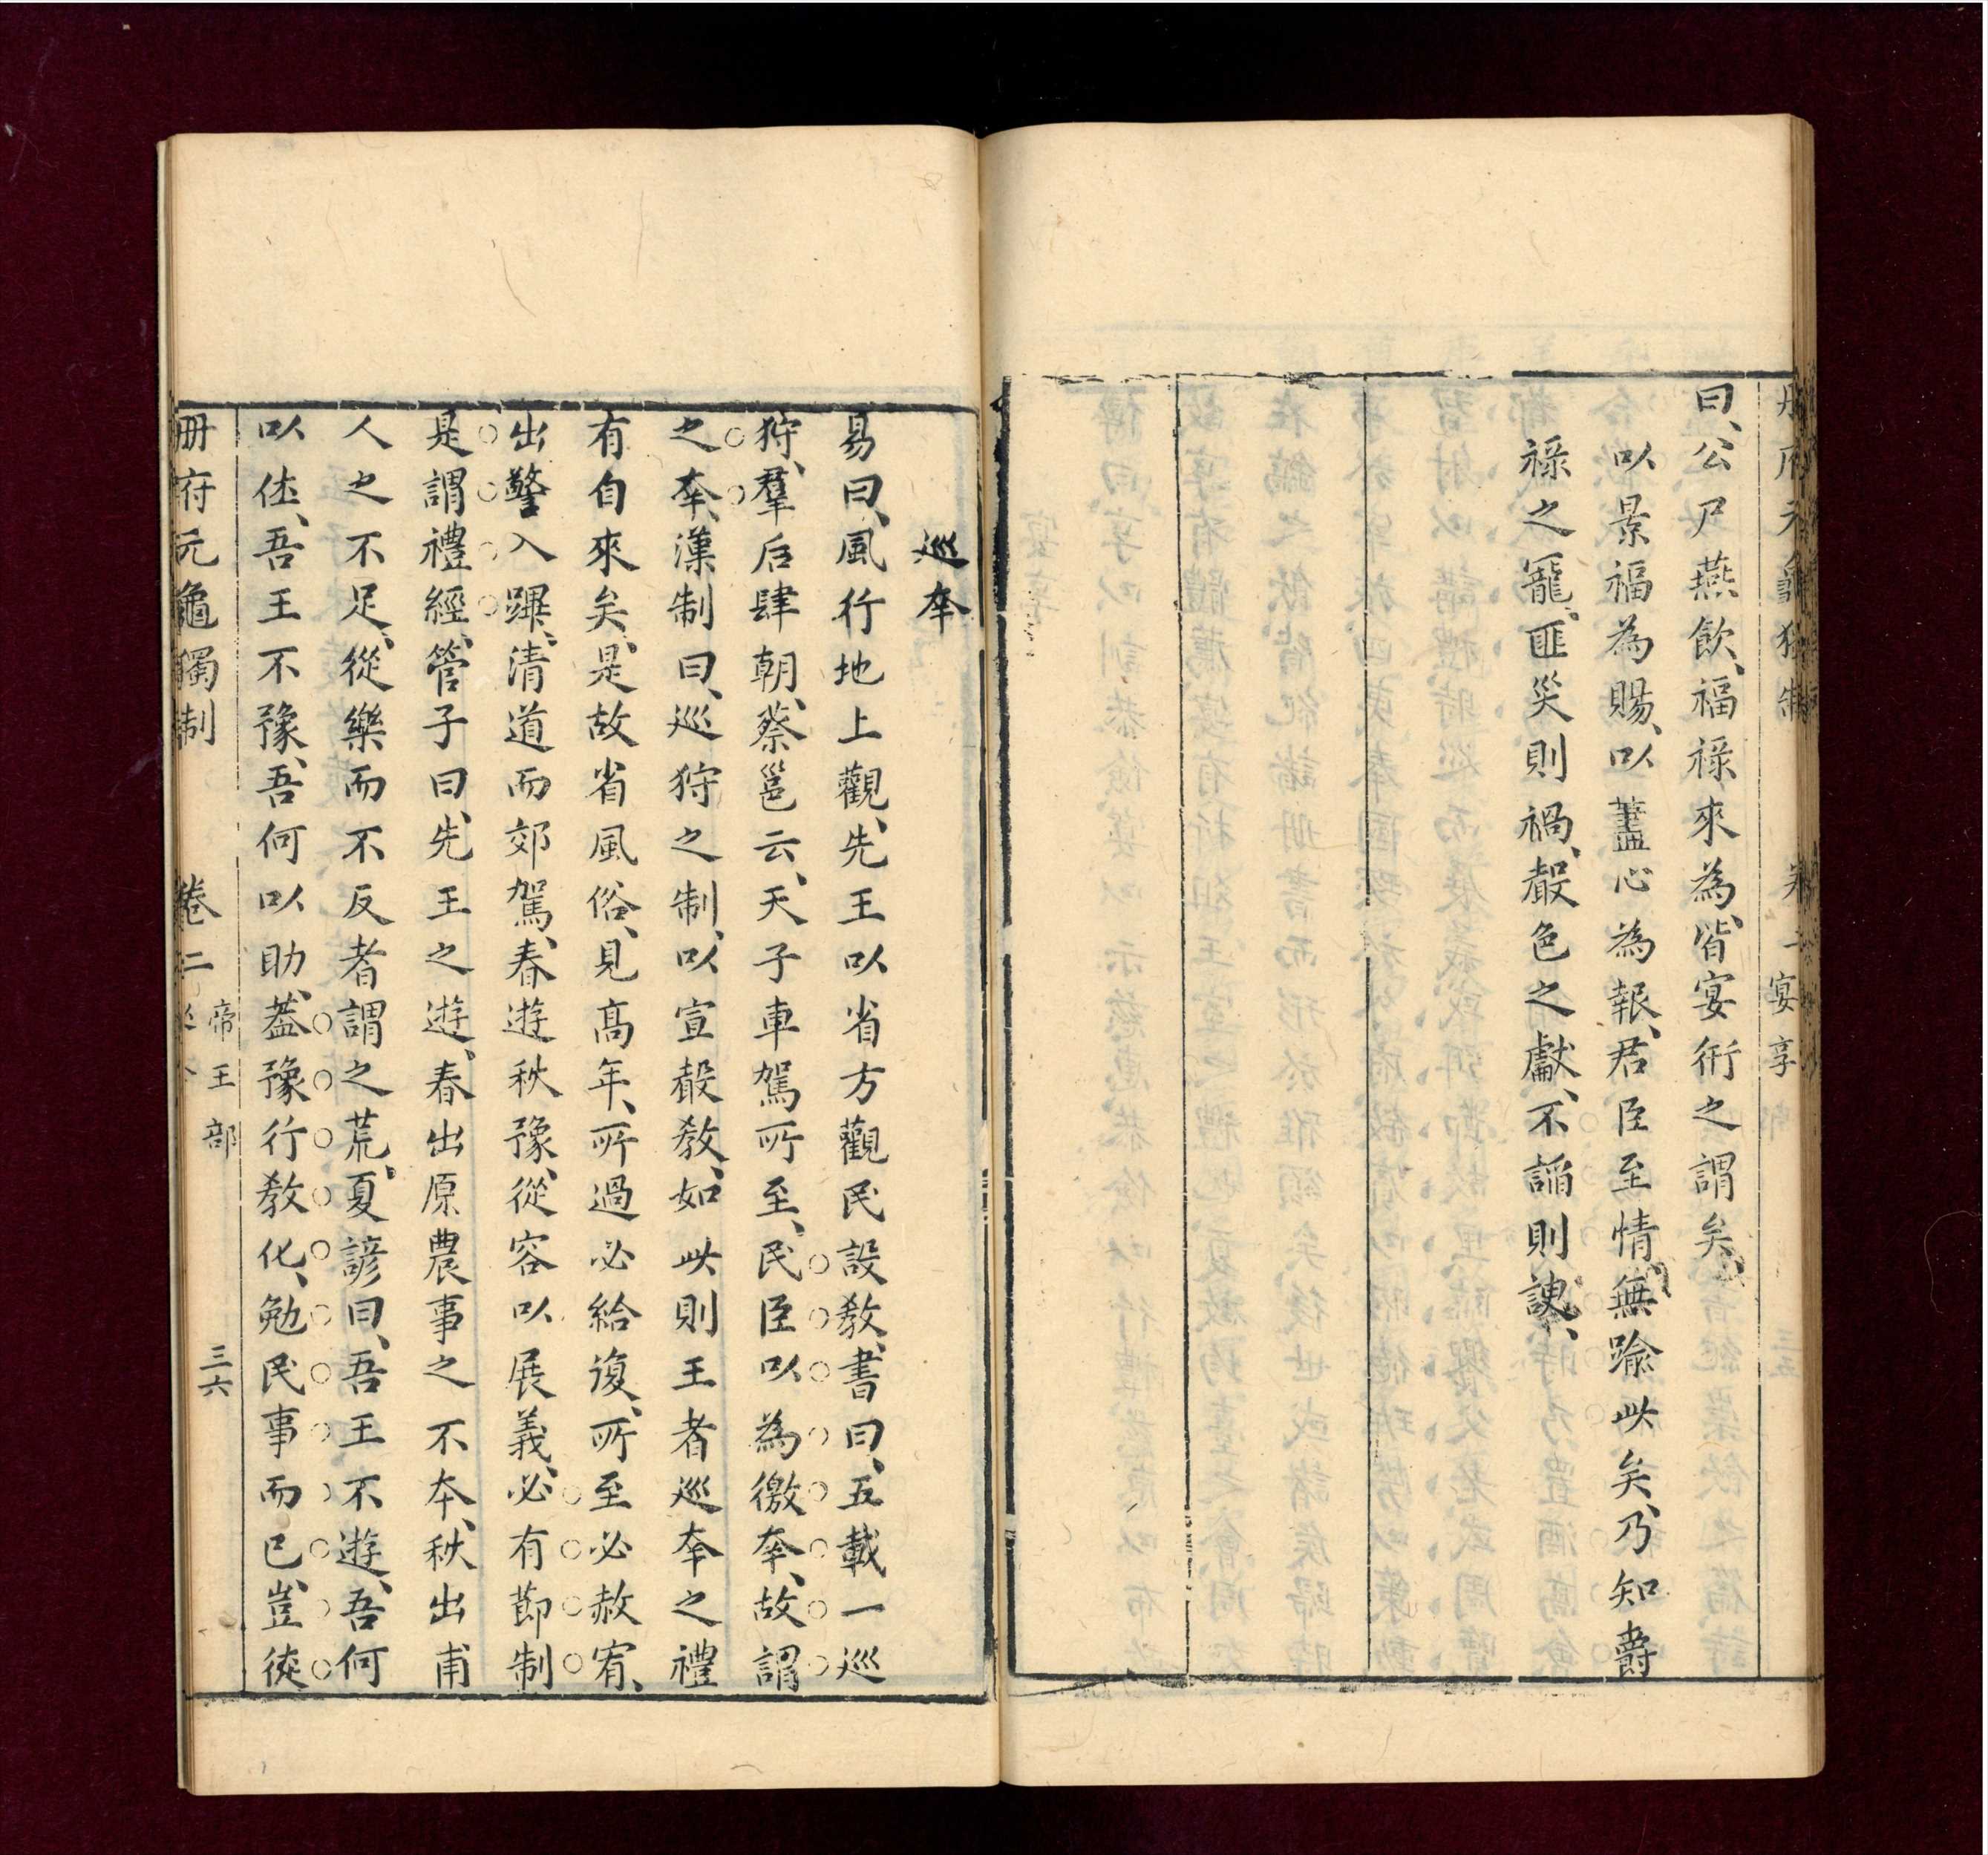 曰、公尸燕飲、福祿來為、皆宴衎之謂矣、
以景福為賜、以藎心為報、君臣至情、無踰此矣、乃知爵
祿之寵、匪災則禍、聲色之獻、不謟則諛、
宴享
巡夲
易曰、風行地上觀、先王以省方觀民設教、書曰、五載一巡
狩、羣后肆朝、蔡邕云、天子車駕所至、民臣以為徼夲、故謂
之夲、漢制曰、巡狩之制、以宣聲教、如此則王者巡夲之禮
有自來矣、是故省風俗、見高年、所過必給復、所至必赦宥、
出警入蹕、清道而郊駕、春遊秋豫、從容以展義、必有節制
是謂禮經、管子曰、先王之遊、春出原農事之不夲、秋出甫
人之不足、從樂而不反者謂之荒、夏諺曰、吾王不遊、吾何
以休、吾王不豫、吾何以助、葢豫行教化、勉民事而已、豈徒
册府元龜獨制 卷二 帝王部 三六